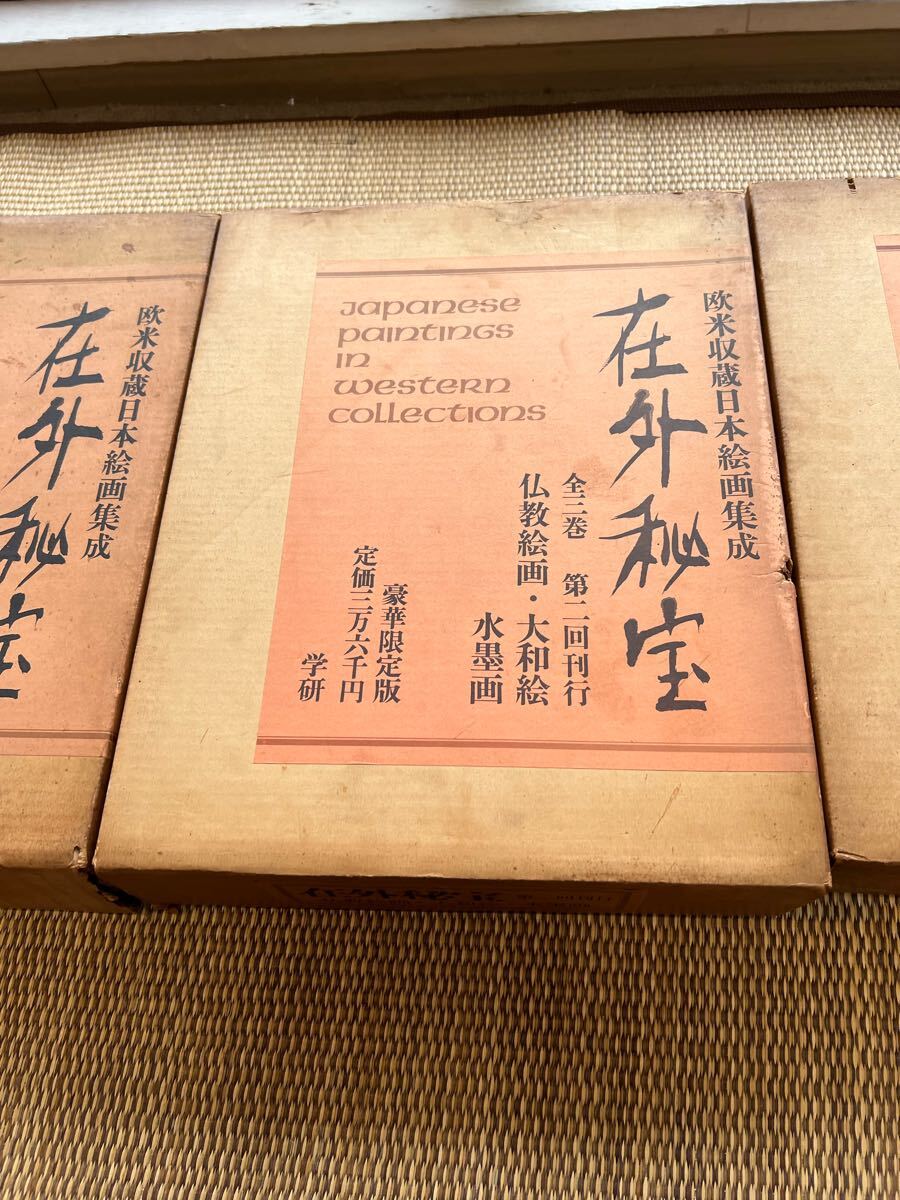 欧米収蔵日本絵画集成
在外秘宝
Japanese
paintings
in
western
collections
全三巻 第二回刊行
仏教絵画・大和絵
水墨画
豪華限定版
定価三万六千円
学研
欧米収蔵日本絵画集成
在外秘宝